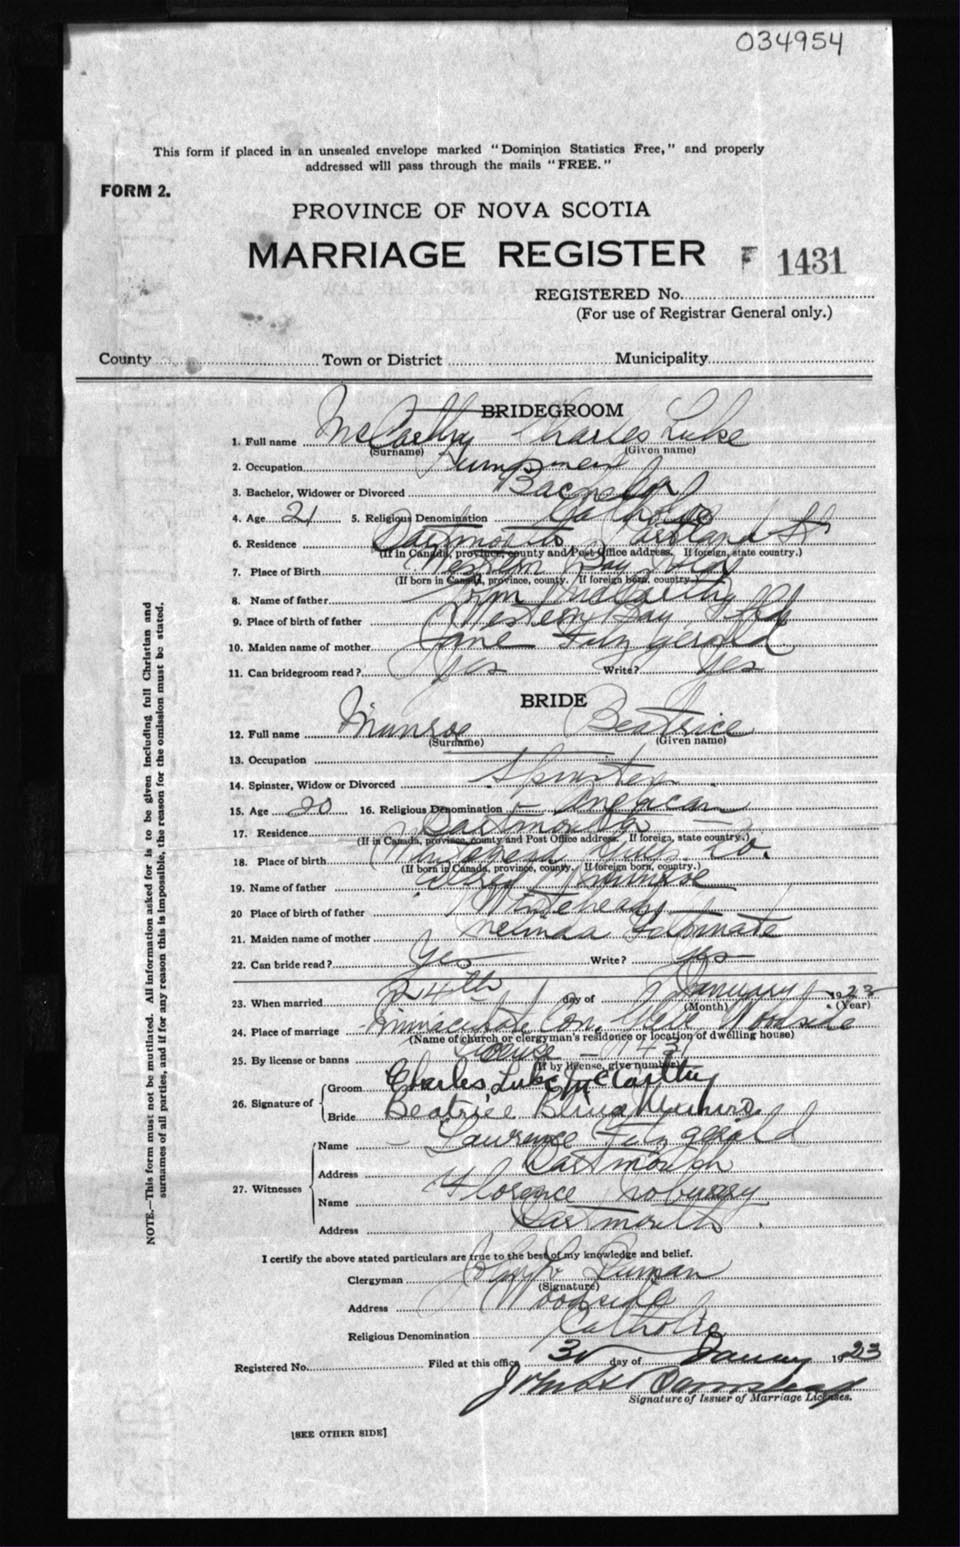 034954
This form if placed in an unsealed envelope marked "Dominion Statistics Free," and properly
addressed will pass through the mails "FREE."
FORM 2.
PROVINCE OF NOVA SCOTIA
MARRIAGE REGISTER F 1431
REGISTERED No.
(For use of Registrar General only.)
County Town or District Municipality
BRIDEGROOM
1. Full name McCarthy Charles Luke
(Surname) (Given name)
2. Occupation
3. Bachelor, Widower or Divorced Bachelor
4. Age 21 5. Religious Denomination Catholic
6. Residence Dartmouth St
(If in Canada, province, county and Post Office address. If foreign, state country.)
7. Place of Birth Western Bay
(If born in Canada, province, county. If foreign born, country.)
8. Name of father McCarthy
9. Place of birth of father Western Bay Nfld
10. Maiden name of mother Jane Fitzgerald
11. Can bridegroom read? Yes Write? Yes
BRIDE
12. Full name Munroe Beatrice
(Surname) (Given name)
13. Occupation
14. Spinster, Widow or Divorced Spinster
15. Age 20 16. Religious Denomination Anglican
17. Residence Dartmouth
(If in Canada, province, county and Post Office address. If foreign, state country.)
18. Place of birth Co.
(If born in Canada, province, county. If foreign born, country.)
19. Name of father Munroe
20 Place of birth of father Whitehead
21. Maiden name of mother Melinda
22. Can bride read? Yes Write? Yes
23. When married 24th day of January 1923
(Month) (Year)
24. Place of marriage Immaculate Con. Woodside
(Name of church or clergyman's residence or location of dwelling house)
25. By license or banns 1431
(If by license, give number)
26. Signature of Groom Charles Luke McCarthy
Bride Beatrice Munro
27. Witnesses Name Lawrence Fitzgerald
Address Dartmouth
Name Florence
Address Dartmouth
I certify the above stated particulars are true to the best of my knowledge and belief.
Clergyman
(Signature)
Address Woodside
Religious Denomination Catholic
Registered No. Filed at this office 30 day of January 1923
Signature of Issuer of Marriage Licenses.
[SEE OTHER SIDE]
NOTE.—This form must not be mutilated. All information asked for is to be given including full Christian and
surnames of all parties, and if for any reason this is impossible, the reason for the omission must be stated.